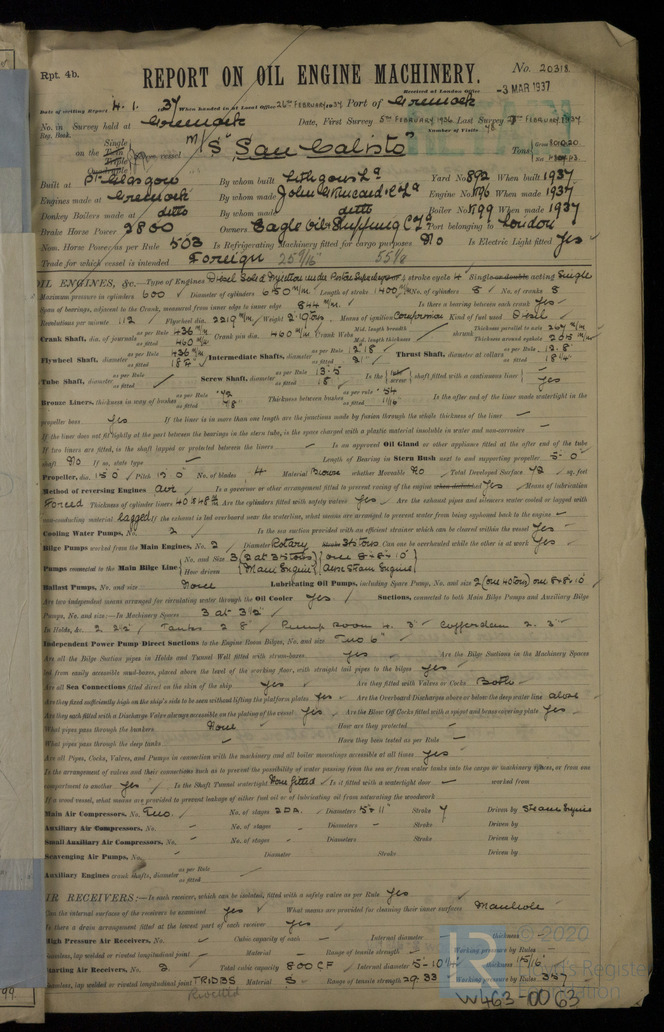 Rpt. 4b.
REPORT ON OIL ENGINE MACHINERY.
No. 20318
Received at London Office -3 MAR 1937
Date of writing Report 4. 1. 37 When handed in at Local Office 26th FEBRUARY 1937 Port of Greenock
No. in Reg. Book. Survey held at Greenock Date, First Survey 5th FEBRUARY 1936 Last Survey FEBRUARY 1937
Number of Visits 78
on the Single Twin Triple Quadruple Screw vessel M/S "San Calisto" Tons Gross Net
Built at Pt Glasgow By whom built Lithgows Ld Yard No. 892 When built 1937
Engines made at Greenock By whom made John G Kincaid & Co Ld Engine No. When made 1937
Donkey Boilers made at ditto By whom made ditto Boiler No. When made 1937
Brake Horse Power Owners Eagle Oil & Shipping Co Ld Port belonging to London
Nom. Horse Power as per Rule 503 Is Refrigerating Machinery fitted for cargo purposes No Is Electric Light fitted Yes
Trade for which vessel is intended Foreign
OIL ENGINES, &c.—Type of Engines 4 stroke cycle 4 Single or double acting Single
Maximum pressure in cylinders 600 Diameter of cylinders 650 m/m Length of stroke 1400 m/m No. of cylinders 8 No. of cranks 8
Span of bearings, adjacent to the Crank, measured from inner edge to inner edge 844 m/m. Is there a bearing between each crank Yes
Revolutions per minute 112 Flywheel dia. 2219 m/m Weight Means of ignition Compression Kind of fuel used Diesel
Crank Shaft, dia. of journals as per Rule 436 m/m as fitted 460 m/m Crank pin dia. 460 m/m Crank Webs Mid. length breadth Mid. length thickness shrunk Thickness parallel to axis 267 m/m Thickness around eyehole
Flywheel Shaft, diameter as per Rule 436 m/m as fitted Intermediate Shafts, diameter as per Rule as fitted Thrust Shaft, diameter at collars as per Rule as fitted
Tube Shaft, diameter as per Rule as fitted Screw Shaft, diameter as per Rule 13.5 as fitted Is the tube screw shaft fitted with a continuous liner Yes
Bronze Liners, thickness in way of bushes as per Rule as fitted Thickness between bushes as per Rule as fitted Is the after end of the liner made watertight in the
propeller boss Yes If the liner is in more than one length are the junctions made by fusion through the whole thickness of the liner —
If the liner does not fit tightly at the part between the bearings in the stern tube, is the space charged with a plastic material insoluble in water and non-corrosive —
If two liners are fitted, is the shaft lapped or protected between the liners — Is an approved Oil Gland or other appliance fitted at the after end of the tube
shaft No If so, state type — Length of Bearing in Stern Bush next to and supporting propeller 5'-0"
Propeller, dia. Pitch No. of blades 4 Material Bronze whether Moveable No Total Developed Surface 72 sq. feet
Method of reversing Engines Air Is a governor or other arrangement fitted to prevent racing of the engine when declutched Yes Means of lubrication
Forced Thickness of cylinder liners Are the cylinders fitted with safety valves Yes Are the exhaust pipes and silencers water cooled or lagged with
non-conducting material lagged If the exhaust is led overboard near the waterline, what means are arranged to prevent water from being syphoned back to the engine —
Cooling Water Pumps, No. 2 Is the sea suction provided with an efficient strainer which can be cleared within the vessel Yes
Bilge Pumps worked from the Main Engines, No. 2 Diameter Rotary Stroke Can one be overhauled while the other is at work Yes
Pumps connected to the Main Bilge Line No. and Size 3 How driven Main Engine
Ballast Pumps, No. and size None Lubricating Oil Pumps, including Spare Pump, No. and size
Are two independent means arranged for circulating water through the Oil Cooler Yes Suctions, connected to both Main Bilge Pumps and Auxiliary Bilge
Pumps, No. and size:—In Machinery Spaces 3 at 3½"
In Holds, &c. 2 2½" Tanks 2 8" Pump Room 4. 3" Cofferdam 2. 3"
Independent Power Pump Direct Suctions to the Engine Room Bilges, No. and size Two 6"
Are all the Bilge Suction pipes in Holds and Tunnel Well fitted with strum-boxes Yes Are the Bilge Suctions in the Machinery Spaces
led from easily accessible mud-boxes, placed above the level of the working floor, with straight tail pipes to the bilges Yes
Are all Sea Connections fitted direct on the skin of the ship Yes Are they fitted with Valves or Cocks Both
Are they fixed sufficiently high on the ship's side to be seen without lifting the platform plates Yes Are the Overboard Discharges above or below the deep water line above
Are they each fitted with a Discharge Valve always accessible on the plating of the vessel Yes Are the Blow Off Cocks fitted with a spigot and brass covering plate Yes
What pipes pass through the bunkers None How are they protected —
What pipes pass through the deep tanks — Have they been tested as per Rule —
Are all Pipes, Cocks, Valves, and Pumps in connection with the machinery and all boiler mountings accessible at all times Yes
Is the arrangement of valves and their connections such as to prevent the possibility of water passing from the sea or from water tanks into the cargo or machinery spaces, or from one
compartment to another Yes Is the Shaft Tunnel watertight None fitted Is it fitted with a watertight door — worked from
If a wood vessel, what means are provided to prevent leakage of either fuel oil or lubricating oil from saturating the woodwork
Main Air Compressors, No. Two. No. of stages Diameters Stroke 7 Driven by Steam Engine
Auxiliary Air Compressors, No. — No. of stages — Diameters — Stroke Driven by
Small Auxiliary Air Compressors, No. — No. of stages — Diameters — Stroke Driven by
Scavenging Air Pumps, No. — Diameter Stroke Driven by
Auxiliary Engines crank shafts, diameter as per Rule as fitted
AIR RECEIVERS:—Is each receiver, which can be isolated, fitted with a safety valve as per Rule Yes
Can the internal surfaces of the receivers be examined Yes What means are provided for cleaning their inner surfaces Manhole
Is there a drain arrangement fitted at the lowest part of each receiver Yes
High Pressure Air Receivers, No. — Cubic capacity of each — Internal diameter thickness
Seamless, lap welded or riveted longitudinal joint — Material — Range of tensile strength Working pressure by Rules
Starting Air Receivers, No. 2 Total cubic capacity 800 CF Internal diameter thickness
Seamless, lap welded or riveted longitudinal joint TRDBS Material S Range of tensile strength 29.33 Working pressure by Rules
Riveted
© 2020
Lloyd's Register
Foundation
W463-0063
99.